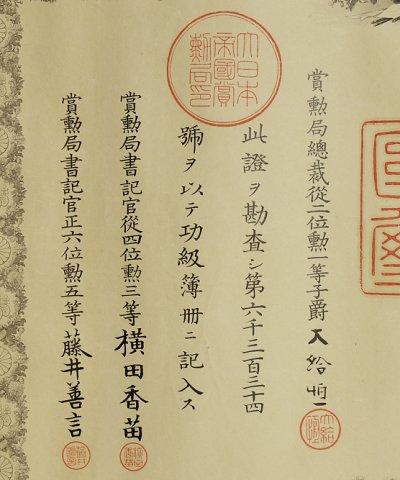 賞勲局總裁從二位勲一等子爵大給恒
此證ヲ勘査シ第六千三百三十四
號ヲ以テ功級簿册ニ記入ス
賞勲局書記官從四位勲三等橫田香苗
賞勲局書記官正六位勲五等藤井善言
大日本帝國賞勲局印